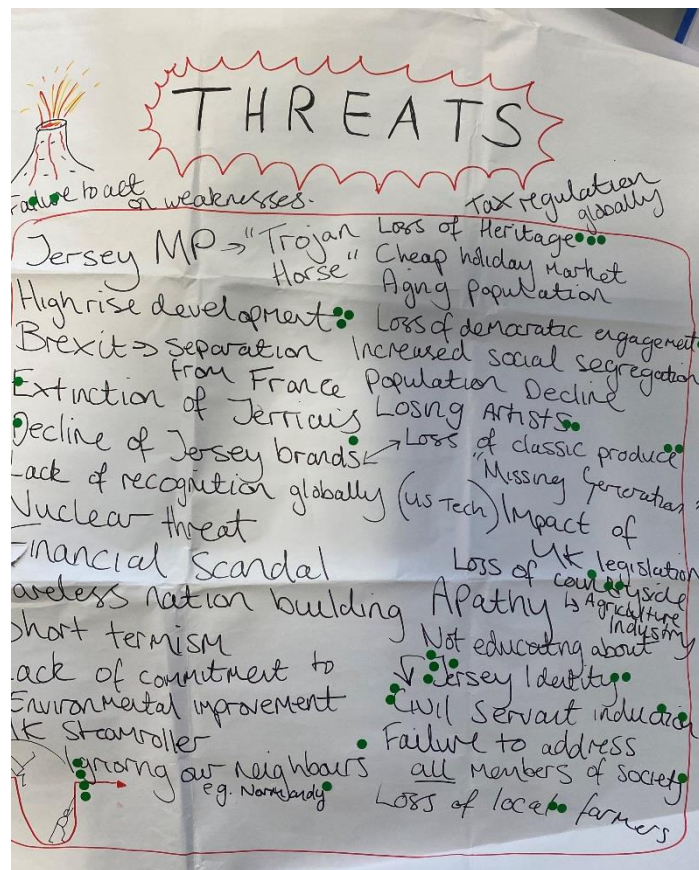 THREATS
Failure to act
on weaknesses.
Tax regulation
globally
Jersey MP → "Trojan
Horse"
High rise development
Brexit ⇒ separation
from France
Extinction of Jerriais
Decline of Jersey brands
Lack of recognition globally (US Tech)
Nuclear threat
Financial Scandal
Careless nation building
Short termism
Lack of commitment to
Environmental improvement
UK Steamroller
Ignoring our neighbours
e.g. Normandy
Loss of Heritage
Cheap holiday Market
Aging population
Loss of demacratic engagement
Increased social segregation
Population Decline
Losing Artists
Loss of classic produce
"Missing Generation"
Impact of
UK legislation
Loss of countryside
↳ Agriculture
Industry
Apathy
Not educating about
Jersey Identity
Civil Servant induction
Failure to address
all members of society
Loss of local farmers